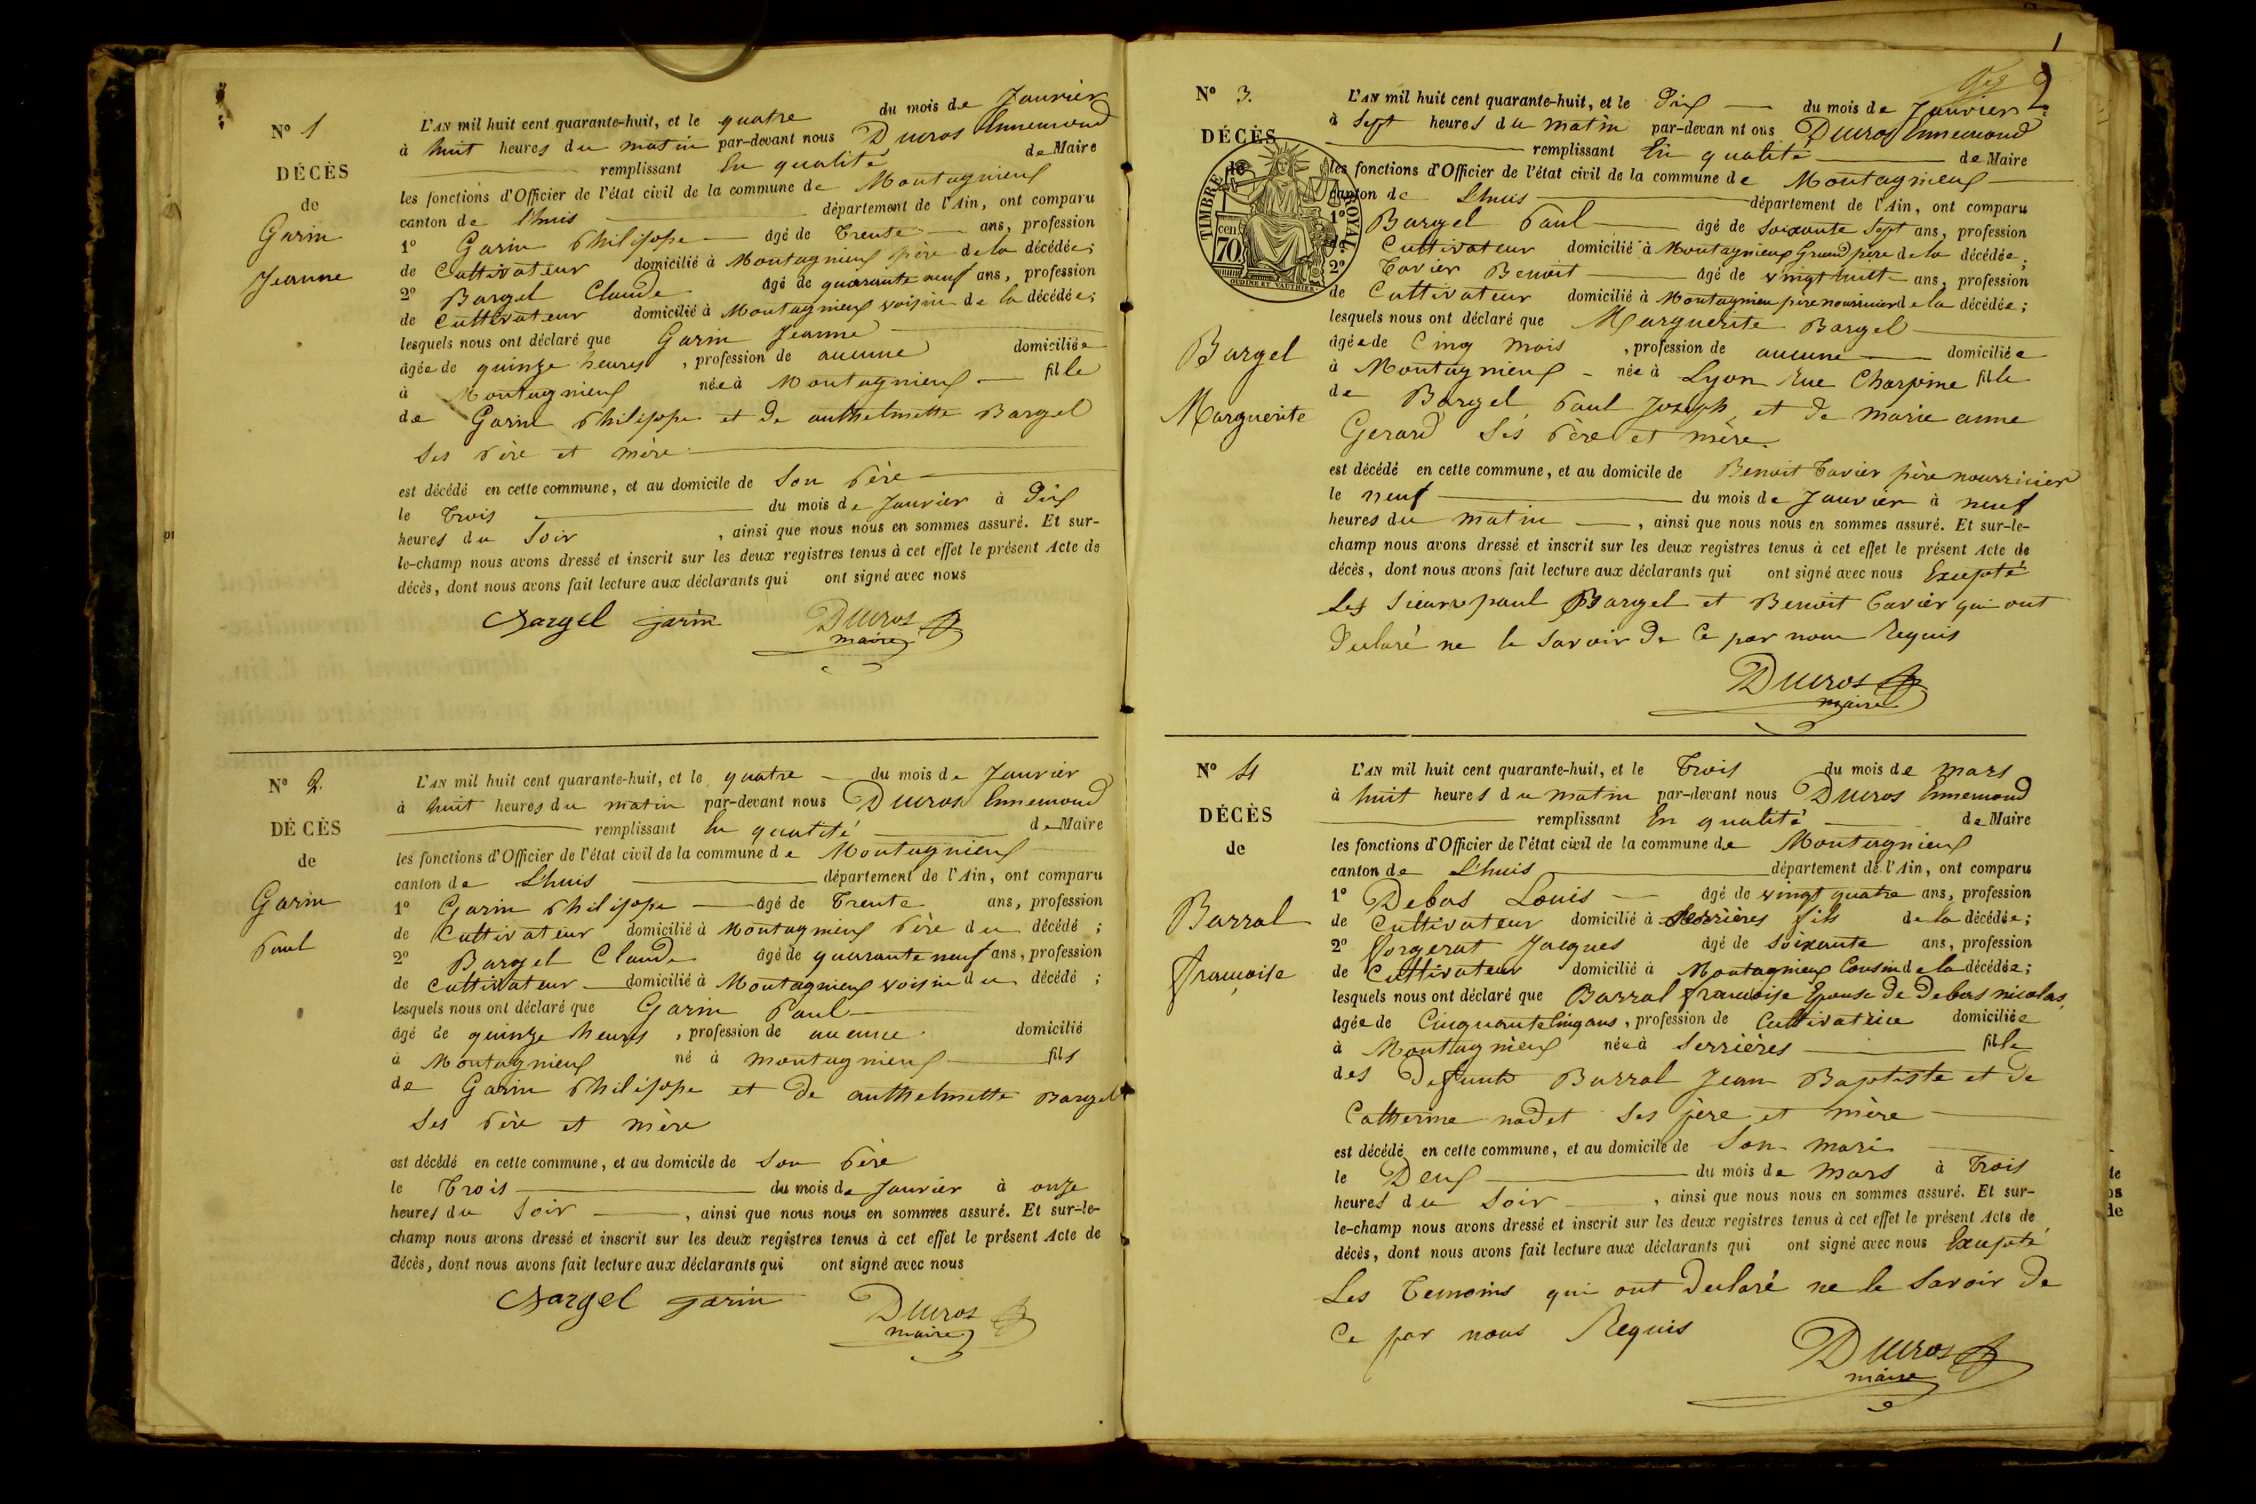 N° 1
DÉCÈS
de
Garin
Jeanne
L'AN mil huit cent quarante-huit, et le quatre du mois de Janvier
à huit heures du matin par-devant nous Ducros Ennemond
remplissant En qualité de Maire
les fonctions d'Officier de l'état civil de la commune de Montagnieux
canton de Lhuis département de l'Ain, ont comparu
1° Garin Philippe âgé de Trente ans, profession
de Cultivateur domicilié à Montagnieux père de la décédée;
2° Bargel Claude âgé de quarante neuf ans, profession
de Cultivateur domicilié à Montagnieux voisin de la décédée;
lesquels nous ont déclaré que Garin Jeanne
âgée de quinze heures, profession de aucune domiciliée
à Montagnieux née à Montagnieux fille
de Garin Philippe et de anthelmette Bargel
Ses Père et mère
est décédé en cette commune, et au domicile de Son Père
le Trois du mois de Janvier à Dix
heures du Soir, ainsi que nous nous en sommes assuré. Et sur-
le-champ nous avons dressé et inscrit sur les deux registres tenus à cet effet le présent Acte de
décès, dont nous avons fait lecture aux déclarants qui ont signé avec nous
Bargel Garin Ducros
maire
N° 2.
DÉCÈS
de
Garin
Paul
L'AN mil huit cent quarante-huit, et le quatre du mois de Janvier
à huit heures du matin par-devant nous Ducros Ennemond
remplissant En qualité de Maire
les fonctions d'Officier de l'état civil de la commune de Montagnieux
canton de Lhuis département de l'Ain, ont comparu
1° Garin Philippe âgé de Trente ans, profession
de Cultivateur domicilié à Montagnieux Père du décédé;
2° Bargel Claude âgé de quarante neuf ans, profession
de Cultivateur domicilié à Montagnieux voisin du décédé;
lesquels nous ont déclaré que Garin Paul
âgé de quinze heures, profession de aucune domicilié
à Montagnieux né à montagnieux fils
de Garin Philippe et de anthelmette Bargel
Ses Père et mère
est décédé en cette commune, et au domicile de Son Père
le Trois du mois de Janvier à onze
heures du Soir, ainsi que nous nous en sommes assuré. Et sur-le-
champ nous avons dressé et inscrit sur les deux registres tenus à cet effet le présent Acte de
décès, dont nous avons fait lecture aux déclarants qui ont signé avec nous
Bargel Garin Ducros
maire
1
2
N° 3.
DÉCÈS
de
TIMBRE ROYAL
70 cen
Bargel
Marguerite
L'AN mil huit cent quarante-huit, et le Dix du mois de Janvier
à Sept heures du matin par-devan nt ous Ducros Ennemond
remplissant En qualité de Maire
les fonctions d'Officier de l'état civil de la commune de Montagnieux
canton de Lhuis département de l'Ain, ont comparu
1° Bargel Paul âgé de Soixante Sept ans, profession
de Cultivateur domicilié à Montagnieux Grand père de la décédée;
2° Tavier Benoit âgé de vingt huit ans, profession
de Cultivateur domicilié à Montagnieu père nourricier de la décédée;
lesquels nous ont déclaré que Marguerite Bargel
âgée de Cinq mois, profession de aucune domiciliée
à Montagnieux née à Lyon Rue Charpine fille
de Bargel Paul Joseph et de marie anne
Gerard Ses Père et mère.
est décédé en cette commune, et au domicile de Benoit Tavier père nourricier
le neuf du mois de Janvier à neuf
heures du matin, ainsi que nous nous en sommes assuré. Et sur-le-
champ nous avons dressé et inscrit sur les deux registres tenus à cet effet le présent Acte de
décès, dont nous avons fait lecture aux déclarants qui ont signé avec nous Excepté
Les Sieurs paul Bargel et Benoit Tavier qui ont
Declaré ne le Savoir de Ce par nous Requis
Ducros
maire
N° 4
DÉCÈS
de
Barral
françoise
L'AN mil huit cent quarante-huit, et le Trois du mois de mars
à huit heures du matin par-devant nous Ducros Ennemond
remplissant En qualité de Maire
les fonctions d'Officier de l'état civil de la commune de Montagnieux
canton de Lhuis département de l'Ain, ont comparu
1° Debas Louis âgé de vingt quatre ans, profession
de Cultivateur domicilié à Serrières fils de la décédée;
2° forgerat Jacques âgé de Soixante ans, profession
de Cultivateur domicilié à Montagnieux Cousin de la décédée;
lesquels nous ont déclaré que Barral françoise Epouse de Debas nicolas,
âgée de Cinquante Cinq ans, profession de Cultivatrice domiciliée
à Montagnieux née à Serrières fille
des Defunts Barral Jean Baptiste et de
Catherine nodet Ses père et mère
est décédé en cette commune, et au domicile de Son mari
le Deux du mois de mars à Trois
heures du Soir, ainsi que nous nous en sommes assuré. Et sur-
le-champ nous avons dressé et inscrit sur les deux registres tenus à cet effet le présent Acte de
décès, dont nous avons fait lecture aux déclarants qui ont signé avec nous Excepté
Les Temoins qui ont Declaré ne le Savoir de
Ce par nous Requis
Ducros
maire